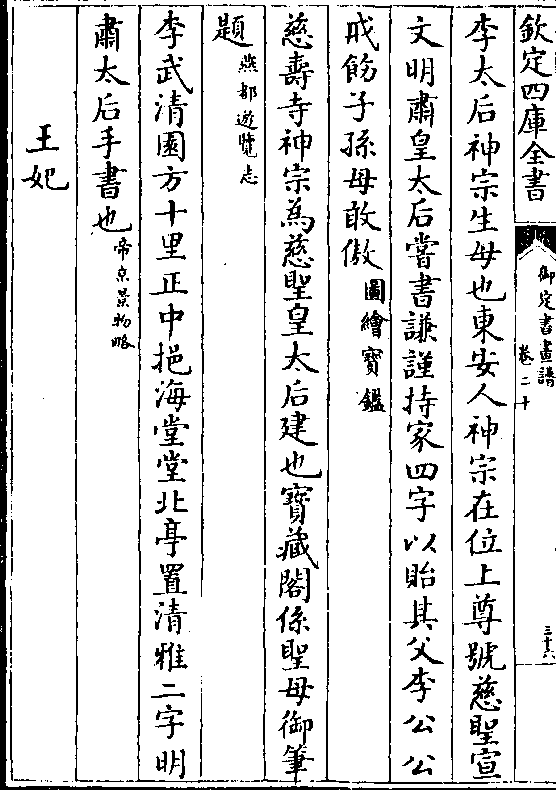 欽定四庫全書
御定書畫譜
卷二十
三十六
李太后神宗生母也東安人神宗在位上尊號慈聖宣
文明肅皇太后嘗書謙謹持家四字以貽其父李公公
戒飭子孫毋敢傲圖繪寶鑑
慈壽寺神宗為慈聖皇太后建也寶藏閣係聖母御筆
題燕都遊覽志
李武清園方十里正中挹海堂堂北亭置清雅二字明
肅太后手書也帝京景物略
王妃